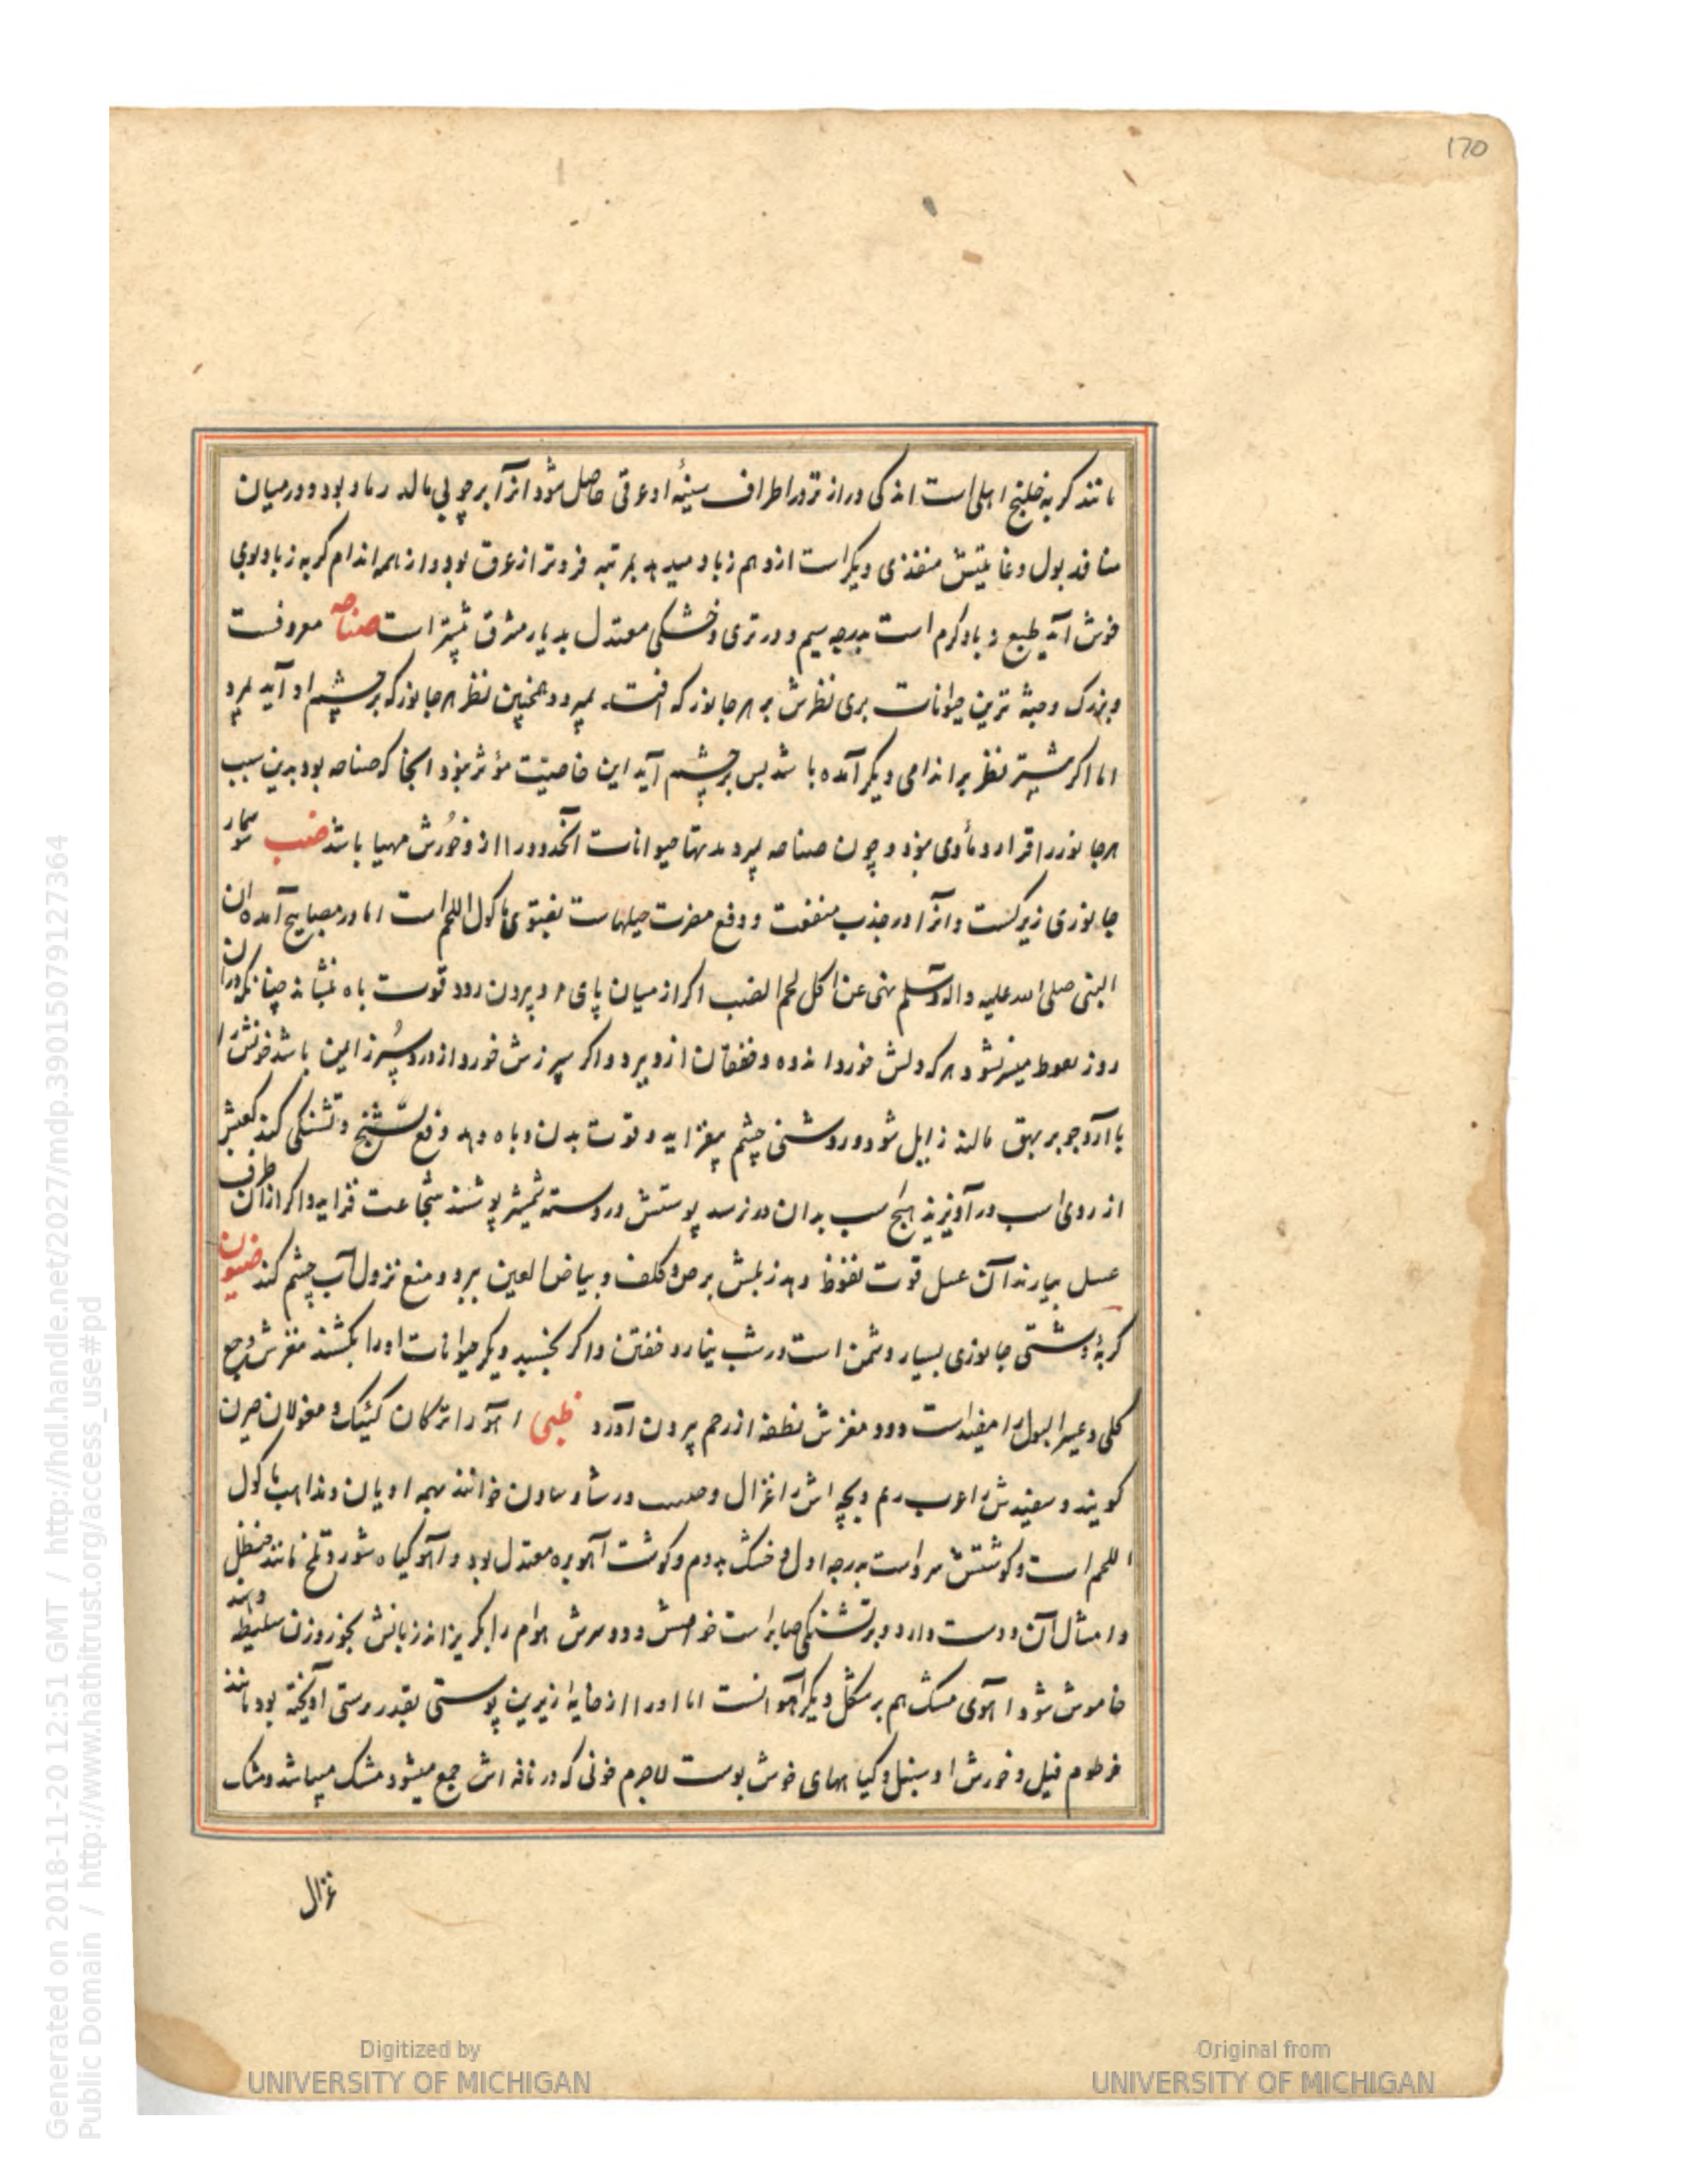 170
مانند کربه خلنج اهلی است اندکی دراز تر در اطراف سینهٔ او عرقی حاصل شود انرا برچوبی مالند زباد بود و در میان
منافد بول و غایتش منفذی دیکر است ازو هم زباد میدهد بمرتبه فروتر از عرق بود و از همه اندام کربه زباد بوی
خوش آید طبع زباد کرم است بدرجه سیم و در تری و خشکی معتدل بدیار مشرق بیشتر است صناجه معروفست
و بزرک و جثه ترین حیوانات بری نظرش بر هر جانور که افتد بمیرد و همچنین نظر هر جانور که بر چشم او آید بمیرد
اما اکر بیشتر نظر بر اندامی دیکر آمده باشد پس بر چشم آید این خاصیت مؤثر نبود انجا که صناجه بود بدین سبب
هر جانور را قرار و مأوی نبود و چون صناجه بمیرد مدتها حیوانات انحدود را ازو خورش مهیا باشد ضب سوسمار
جانوری زیرکست و انرا در جذب منفعت و دفع مضرت حیلهاست بفتوی ماکول اللحم است اما در مصابیح آمده ان
النبی صلی الله علیه واله وسلم نهی عن اکل لحم الضب اکر از میان پای مرد بیرون رود قوت باه بنشاند چنانکه در آن
روز نعوظ میسر نشود هر که دلش خورد اندوه و خفقان ازو ببرد و اکر سپرزش خورد از درد سپرز ایمن باشد خونش را
با آرد جو بر بهق مالند زایل شود و روشنی چشم بیفزاید و قوت بدن و باه دهد و دفع تشنج و تشنکی کند کعبش
از روی اسب در آویزند هیچ اسب بدان نرسد پوستش در دسته شمشیر پوشند شجاعت فزاید و اکر از آن ظرف
عسل بیارند آن عسل قوت نعوظ دهد زبلش برص و کلف و بیاض العین ببرد و منع نزول آب چشم کند ضیون
کربهٔ دشتی جانوری بسیار دشمن است در شب نیارد خفتن و اکر بخسبد دیکر حیوانات او را بکشند مغزش وجع
کلی و عسر البول را مفید است و دود مغزش نطفه از رحم بیرون آورد ظبی آهو را ترکان کییک و مغولان جرن
کویند و سفیدش را عرب ریم و بچه اش را غزال و خوانند بهمه ادیان و مذاهب ماکول
اللحم است و کوشتش سرد است بدرجه اول و خشک بدوم و کوشت آهو بره معتدل بود و آهو کیاه شور و تلخ مانند حنظل
و امثال آن دوست دارد و بر تشنکی صابر است و دود سرش هوام را بکریزاند زبانش بخورد زن سلیطه دهند
خاموش شود آهوی مشک هم بر شکل دیکر آهوانست اما او را از خایه زیرین پوستی بقدر بدستی آویخته بود مانند
خرطوم فیل و خورش او سنبل و کیاههای خوش بوست لاجرم خونی که در نافه اش جمع میشود مشک میباشد و مشک
غزال
Generated on 2018-11-20 12:51 GMT / http://hdl.handle.net/2027/mdp.39015079127364
Public Domain / http://www.hathitrust.org/access_use#pd
Digitized by
UNIVERSITY OF MICHIGAN
Original from
UNIVERSITY OF MICHIGAN